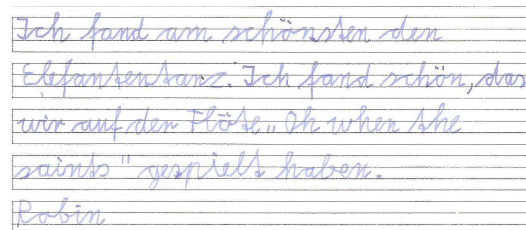 Ich fand am schönsten den
Elefantentanz. Ich fand schön, das
wir auf den Flöte „Oh when the
saints" gespielt haben.
Robin